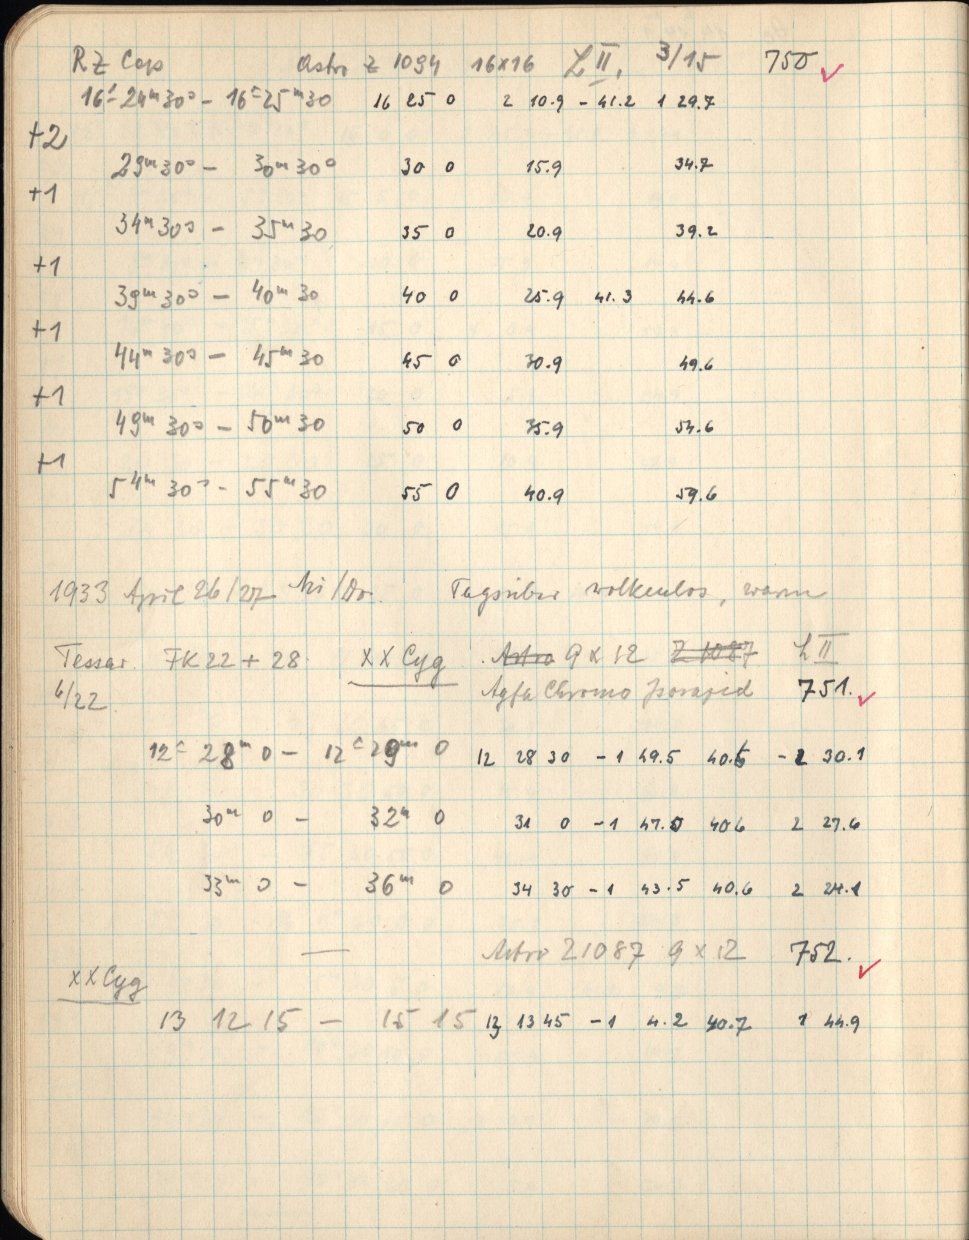 RZ Cep Astro Z 1094 16x16 L II, 3/15 750 ✓
16ʰ 24ᵐ 30ˢ – 16ʰ 25ᵐ 30 16 25 0 2 10.9 – 41.2 1 29.7
+2
29ᵐ 30ˢ – 30ᵐ 30ˢ 30 0 15.9 34.7
+1
34ᵐ 30ˢ – 35ᵐ 30 35 0 20.9 39.2
+1
39ᵐ 30ˢ – 40ᵐ 30 40 0 25.9 41.3 44.6
+1
44ᵐ 30ˢ – 45ᵐ 30 45 0 30.9 49.6
+1
49ᵐ 30ˢ – 50ᵐ 30 50 0 35.9 54.6
+1
54ᵐ 30ˢ – 55ᵐ 30 55 0 40.9 59.6
1933 April 26/27 Tagsüber wolkenlos, warm
Tessar FK 22 + 28 XX Cyg Astro 9 x 12 Z 1087 L II
6/22 Agfa Chromo 751. ✓
12ʰ 28ᵐ 0 – 12ʰ 29ᵐ 0 12 28 30 – 1 49.5 40.6 – 2 30.1
30ᵐ 0 – 32ᵐ 0 31 0 – 1 47.0 40.6 2 27.6
33ᵐ 0 – 36ᵐ 0 34 30 – 1 43.5 40.6 2 24.1
— Astro Z 1087 9 x 12 752. ✓
XX Cyg
13 12 15 – 15 15 13 13 45 – 1 4.2 40.7 1 44.9